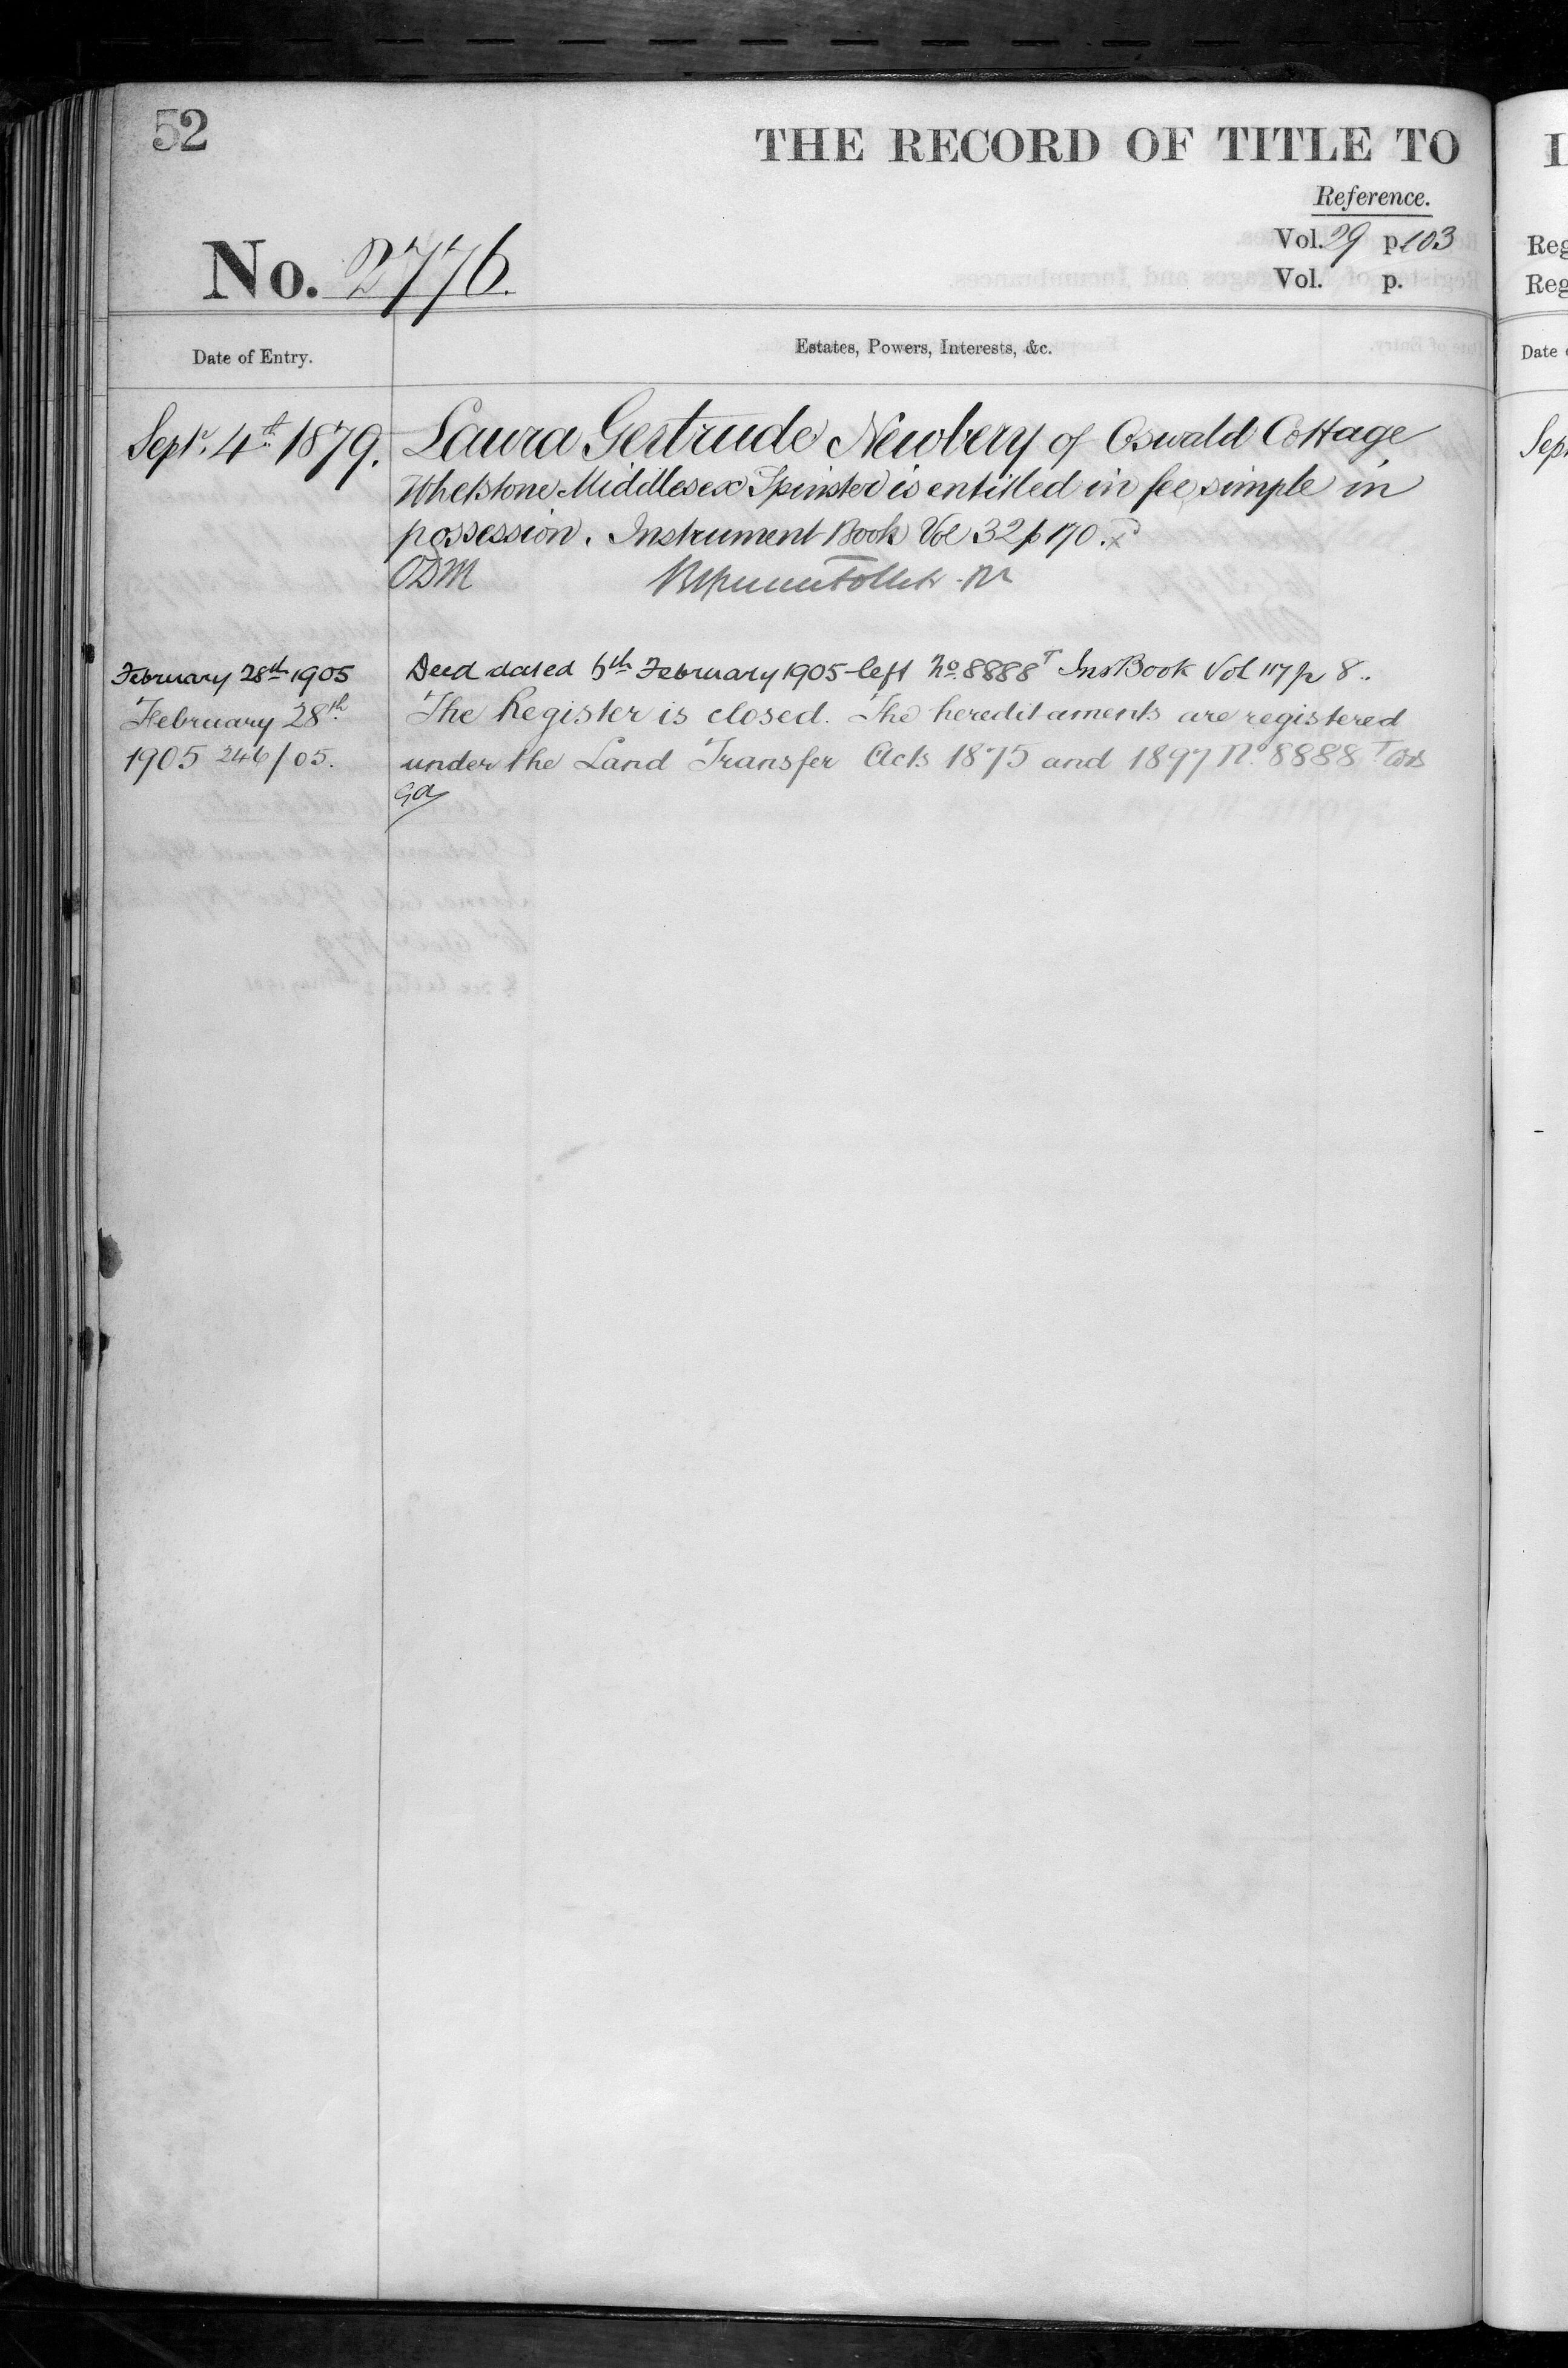 52
THE RECORD OF TITLE TO
Reference.
Vol. 29 p. 103
No. 2776.
Vol. p.
Date of Entry.
Estates, Powers, Interests, &c.
Sept. 4th 1879.
Laura Gertrude Newbery of Oswald Cottage
Whetstone Middlesex Spinster is entitled in fee simple in
possession. Instrument Book Vol 32 p 170.
ODM
February 28th 1905
Deed dated 6th February 1905 - left No. 8888 T Ins Book Vol 117 p 8.
February 28th
The Register is closed. The hereditaments are registered
1905 246/05.
under the Land Transfer Acts 1875 and 1897 No. 8888 T
Reg
Reg
Date
Sep